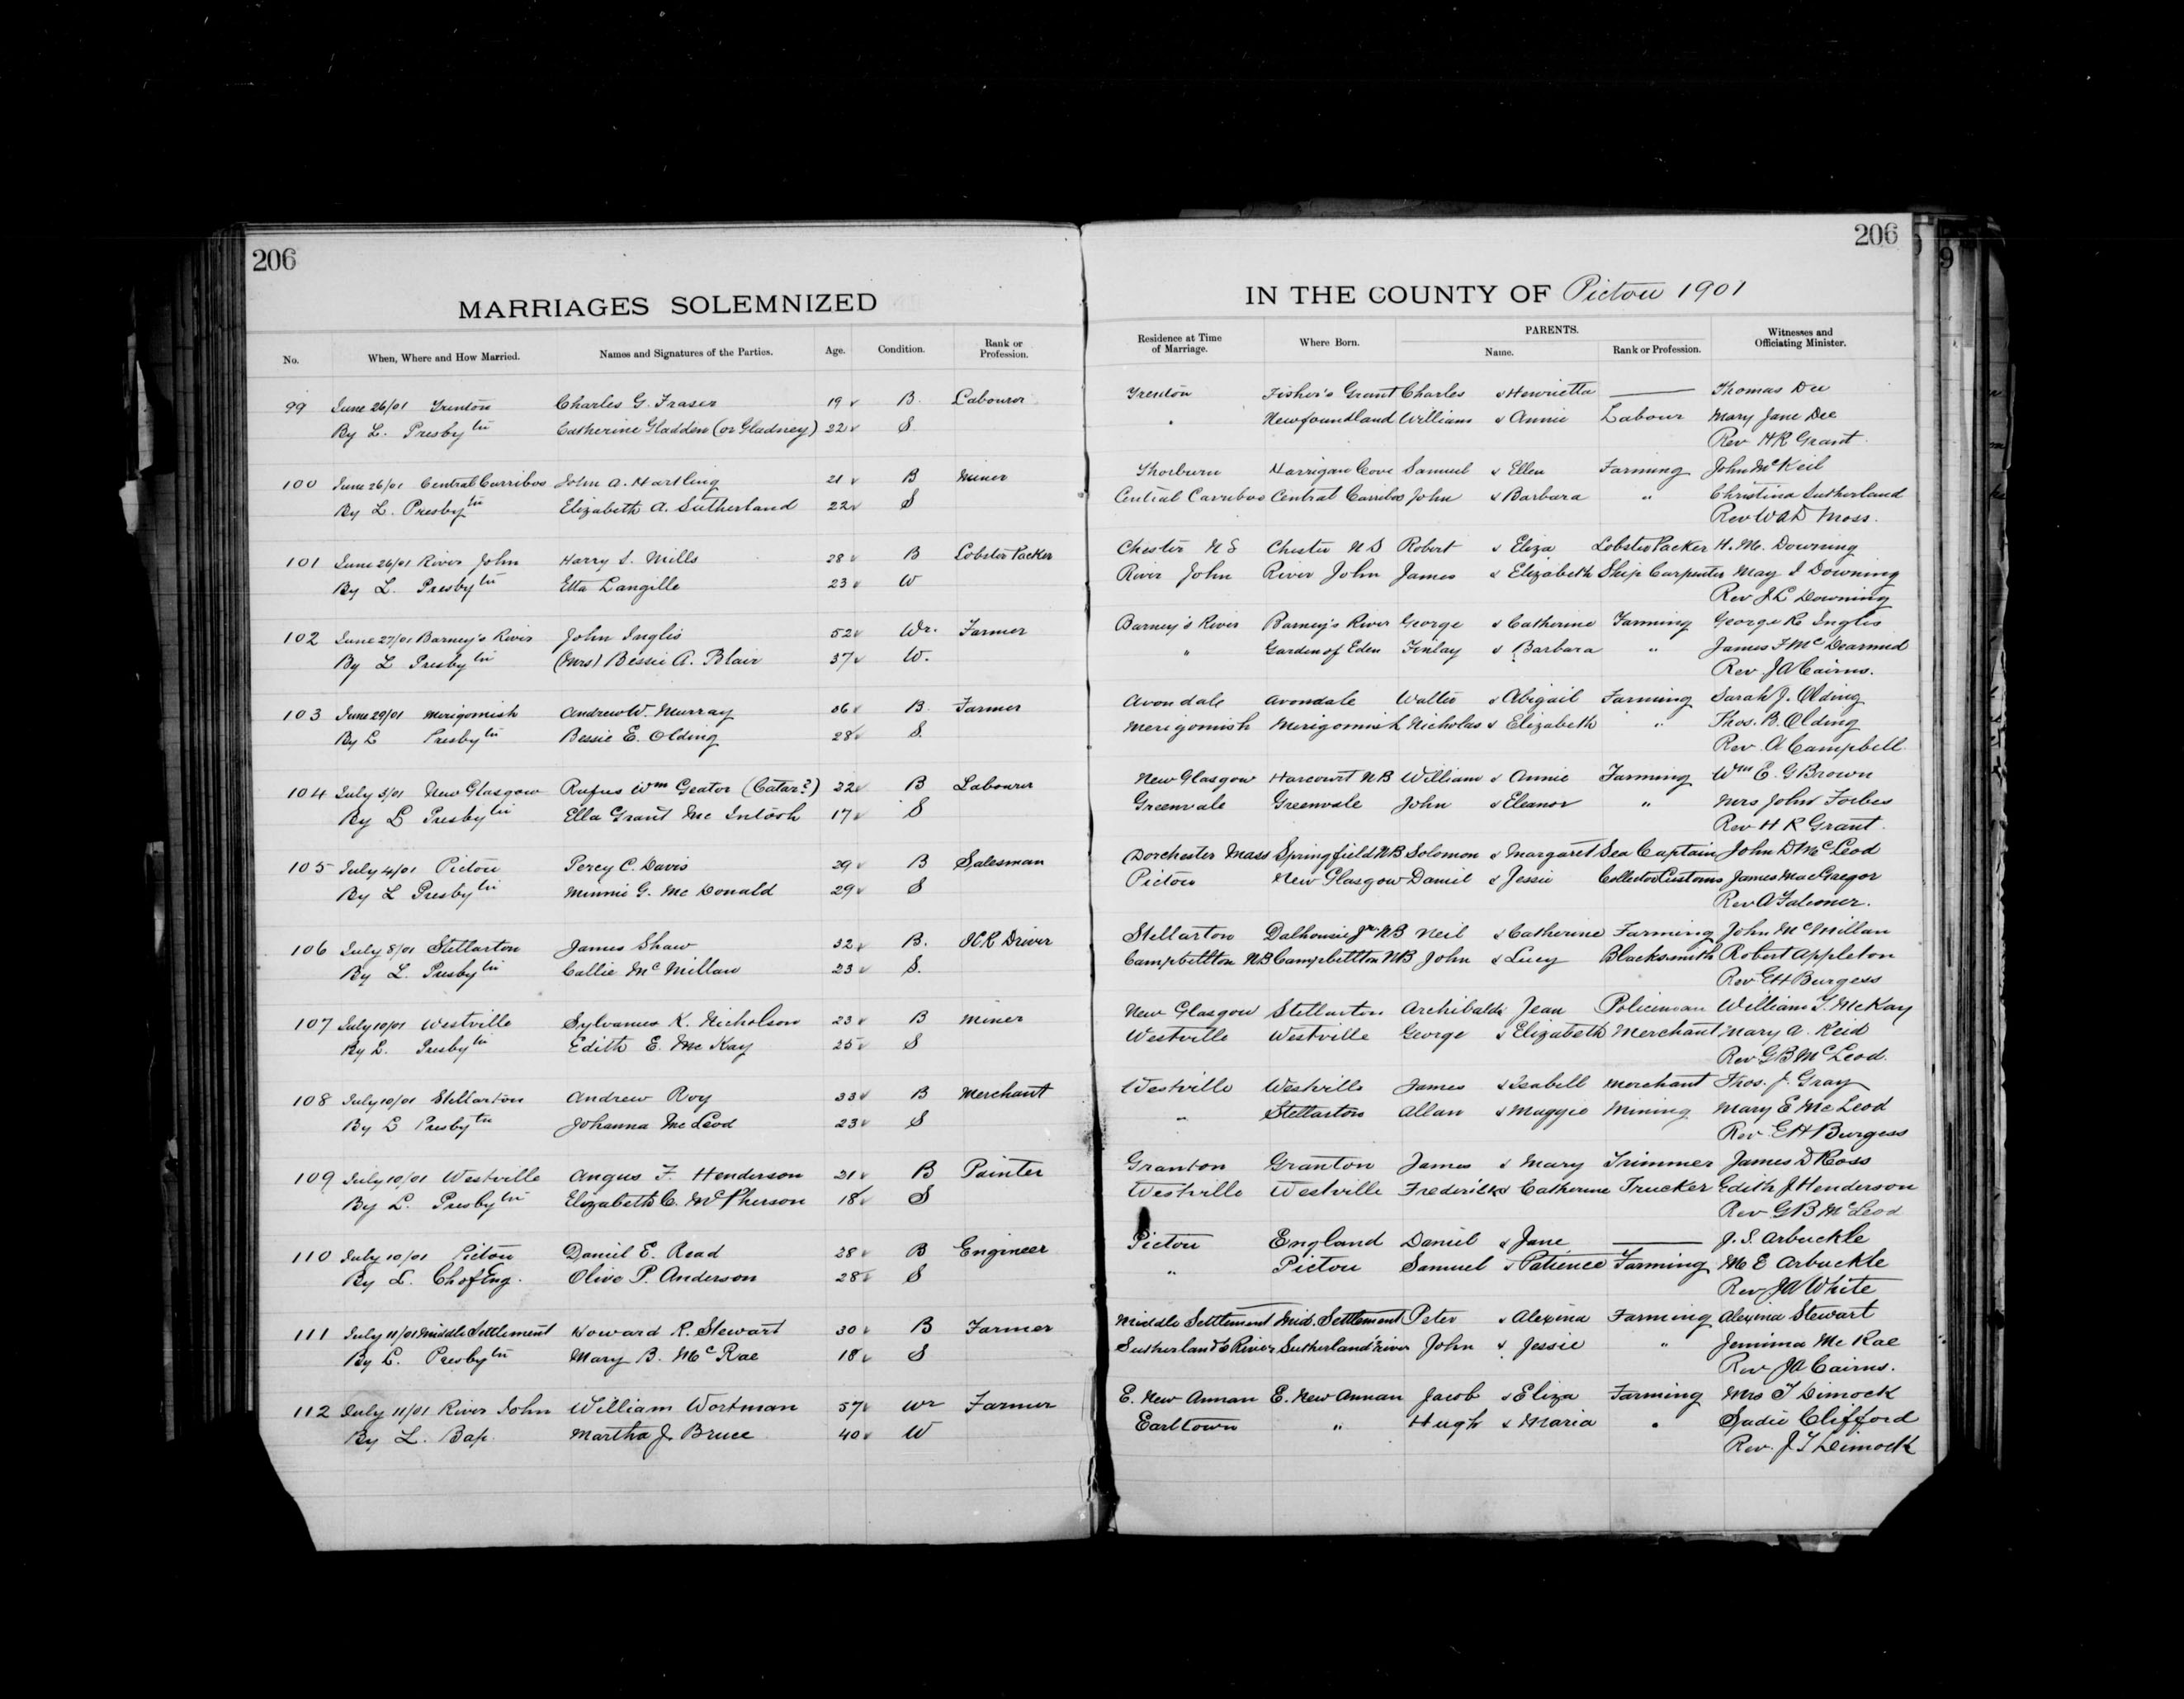 206
MARRIAGES SOLEMNIZED
No. When, Where and How Married. Names and Signatures of the Parties. Age. Condition. Rank or Profession.
99 June 26/01 Trenton Charles G. Fraser 19 B. Labourer
By L. Presbytn Catherine Gladden (or Gladney) 22 S.
100 June 26/01 Central Carriboo John A. Hartling 21 B Miner
By L. Presbytn Elizabeth A. Sutherland 22 S
101 June 26/01 River John Harry S. Mills 28 B Lobster Packer
By L. Presbytn Etta Langille 23 W
102 June 27/01 Barney's River John Inglis 52 Wr. Farmer
By L Presbytn (Mrs) Bessie A. Blair 37 W.
103 June 29/01 Merigomish Andrew W. Murray 36 B. Farmer
By L Presbytn Bessie E. Olding 28 S.
104 July 3/01 New Glasgow Rufus Wm Geator (Catar?) 22 B Labourer
By L Presbytn Ella Grant Mc Intosh 17 S
105 July 4/01 Pictou Percy C. Davis 29 B Salesman
By L Presbytn Minnie G. Mc Donald 29 S
106 July 8/01 Stellarton James Shaw 32 B. ICR Driver
By L. Presbytn Callie McMillan 23 S.
107 July 10/01 Westville Sylvanus K. Nicholson 23 B Miner
By L. Presbytn Edith E. Mc Kay 25 S
108 July 10/01 Stellarton Andrew Roy 33 B Merchant
By L Presbytn Johanna Mc Leod 23 S
109 July 10/01 Westville Angus F. Henderson 21 B Painter
By L. Presbytn Elizabeth C. McPherson 18 S
110 July 10/01 Pictou Daniel E. Read 28 B Engineer
By L. Ch of Eng. Olive P. Anderson 28 S
111 July 11/01 Middle Settlement Howard R. Stewart 30 B Farmer
By L. Presbytn Mary B. McRae 18 S
112 July 11/01 River John William Wortman 57 Wr Farmer
By L. Bap. Martha J. Bruce 40 W
206
IN THE COUNTY OF Pictou 1901
Residence at Time of Marriage. Where Born. PARENTS. Name. Rank or Profession. Witnesses and Officiating Minister.
Trenton Fisher's Grant Charles & Henrietta —— Thomas Dee
" Newfoundland William & Annie Labour Mary Jane Dee
Rev H R Grant.
Thorburn Harrigan Cove Samuel & Ellen Farming John McKeil
Central Carriboo Central Carriboo John & Barbara " Christina Sutherland
Rev W A D Moss.
Chester N S Chester N S Robert & Eliza Lobster Packer H. M. Downing
River John River John James & Elizabeth Ship Carpenter May I Downing
Rev J L Downing
Barney's River Barney's River George & Catherine Farming George R Inglis
" Garden of Eden Finlay & Barbara " James F McDearmid
Rev J A Cairns.
Avondale Avondale Walter & Abigail Farming Sarah J. Olding
Merigomish Merigomish Nicholas & Elizabeth " Thos. B. Olding
Rev. A Campbell.
New Glasgow Harcourt N B William & Annie Farming Wm E. G Brown
Greenvale Greenvale John & Eleanor " Mrs John Forbes
Rev H R Grant.
Dorchester Mass Springfield NB Solomon & Margaret Sea Captain John D McLeod
Pictou New Glasgow Daniel & Jessie Collector Customs James MacGregor
Rev A Falconer.
Stellarton Dalhousie Jn NB Neil & Catherine Farming John McMillan
Campbellton NB Campbellton NB John & Lucy Blacksmith Robert Appleton
Rev E H Burgess
New Glasgow Stellarton Archibald & Jean Policeman William T. McKay
Westville Westville George & Elizabeth Merchant Mary A. Reid
Rev G B McLeod.
Westville Westville James & Isabell Merchant Thos. J. Gray
" Stellarton Allan & Maggie Mining Mary E McLeod
Rev E H Burgess
Granton Granton James & Mary Trimmer James D Ross
Westville Westville Frederick & Catherine Trucker Edith J Henderson
Rev G B McLeod
Pictou England Daniel & Jane —— J. S. Arbuckle
" Pictou Samuel & Patience Farming M E Arbuckle
Rev J A White
Middle Settlement Mid. Settlement Peter & Alexina Farming Alexina Stewart
Sutherland's River Sutherland's river John & Jessie " Jemima Mc Rae
Rev J A Cairns.
E. New Annan E. New Annan Jacob & Eliza Farming Mrs T Dimock
Earltown " Hugh & Maria " Sadie Clifford
Rev. J T Dimock